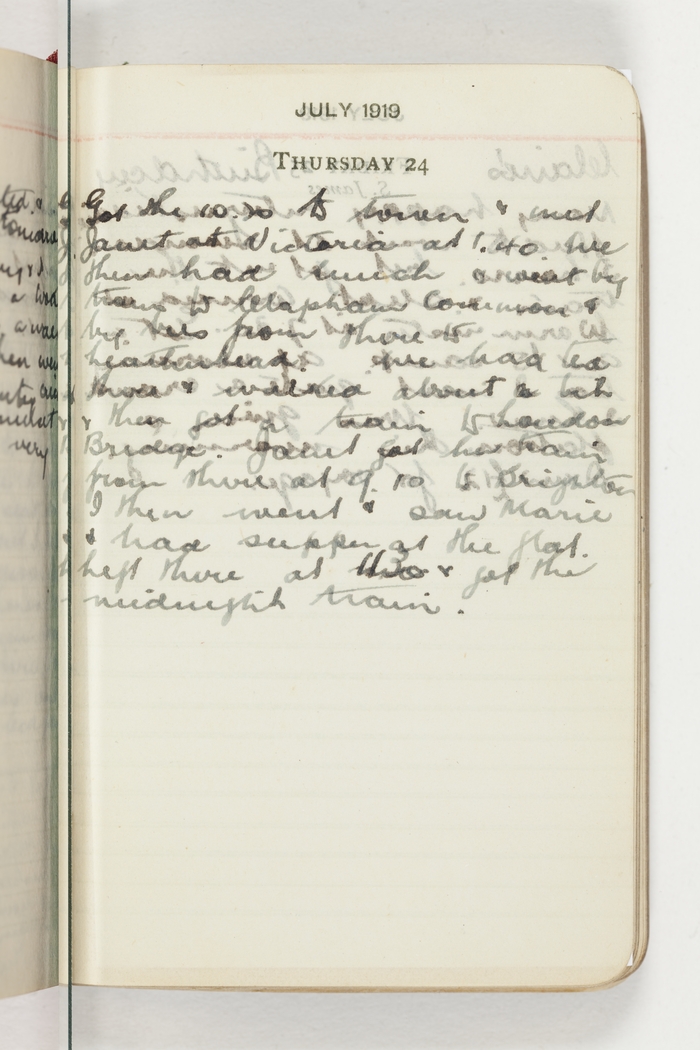 JULY 1919
THURSDAY 24
Got the 10.30 to town & met
Janet at Victoria at 1.40. We
then had lunch & went by
tram to Clapham Common &
by bus from there to
Leatherhead. We had tea
there & walked about a bit
& then got a train to London
Bridge. Janet got her train
from there at 9.10 to Brighton
I then went & saw Marie
& had supper at the flat.
Left there at & got the
midnight train.